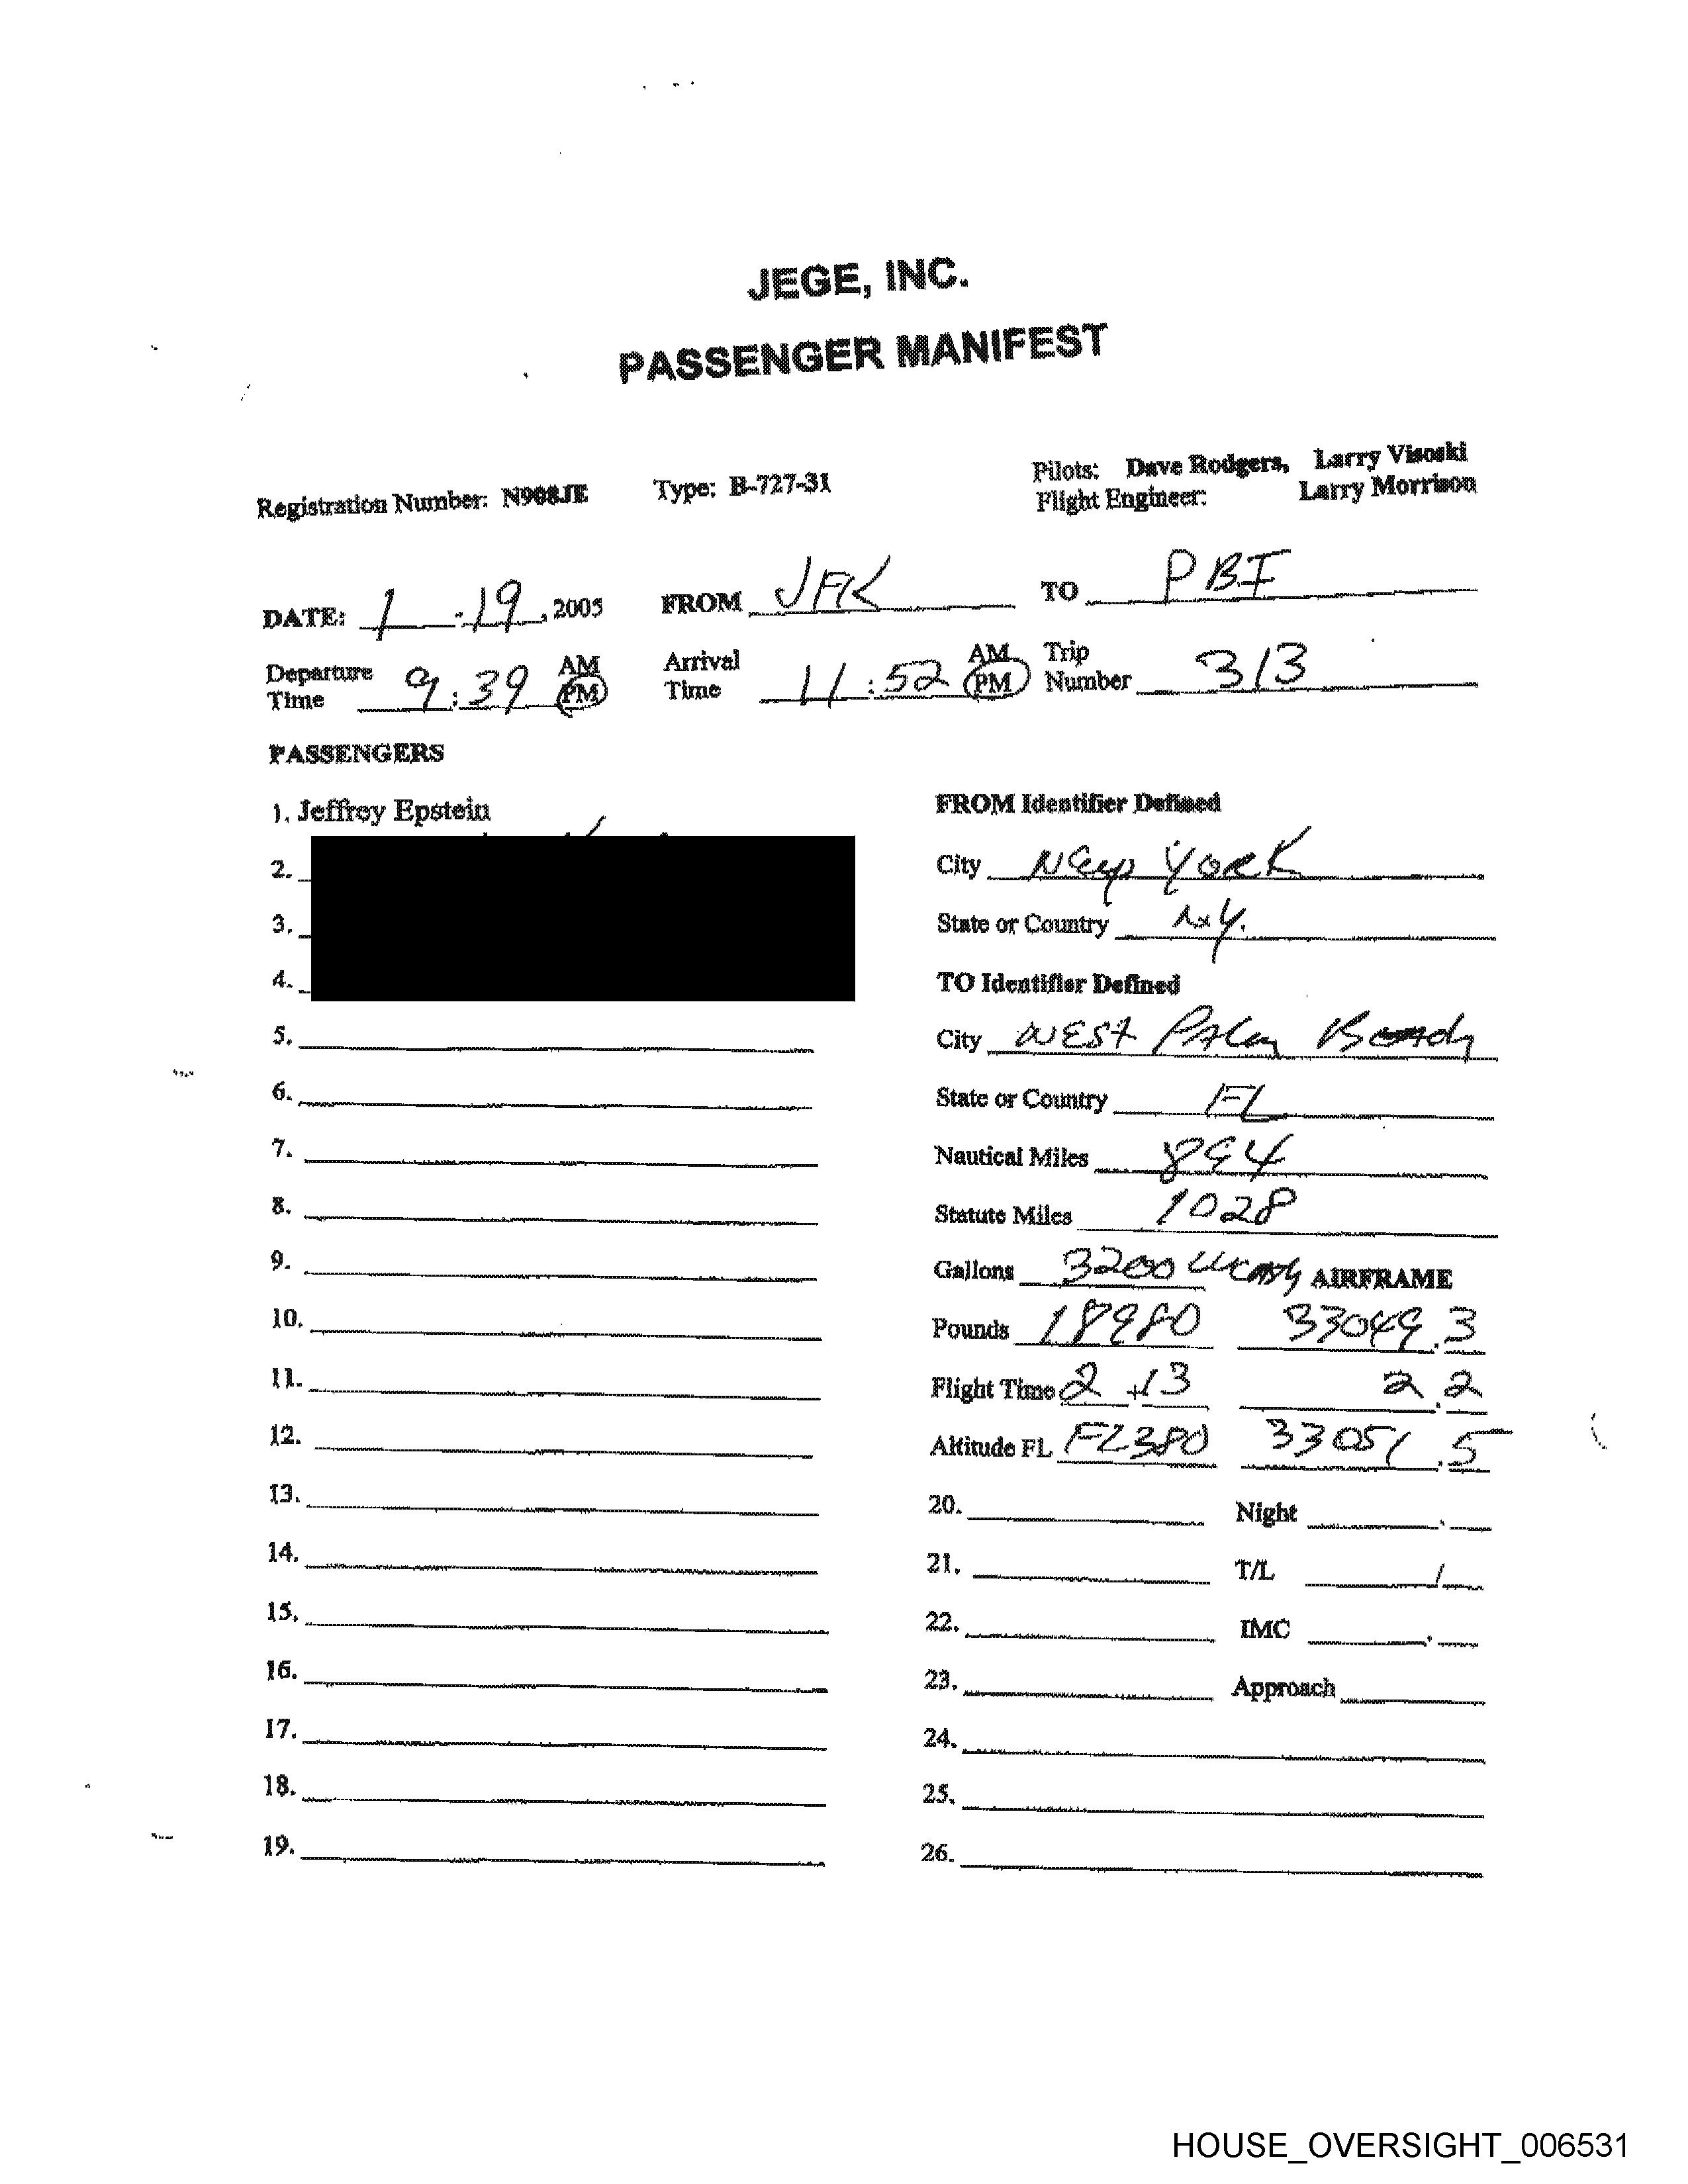 JEGE, INC.
PASSENGER MANIFEST
Registration Number: N908JE Type: B-727-31 Pilots: Dave Rodgers, Larry Visoski
Flight Engineer: Larry Morrison
DATE: 1 - 19, 2005 FROM JFK TO PBI
Departure Time 9:39 AM PM Arrival Time 11:52 AM PM Trip Number 313
PASSENGERS
1. Jeffrey Epstein FROM Identifier Defined
2. City New YORK
3. State or Country N.Y.
4. TO Identifier Defined
5. City WEST PALM Beach
6. State or Country FL
7. Nautical Miles 894
8. Statute Miles 1028
9. Gallons 3200 AIRFRAME
10. Pounds 18980 33049.3
11. Flight Time 2 +13 2.2
12. Altitude FL FL380 33051.5
13. 20. Night
14. 21. T/L /
15. 22. IMC
16. 23. Approach
17. 24.
18. 25.
19. 26.
HOUSE_OVERSIGHT_006531